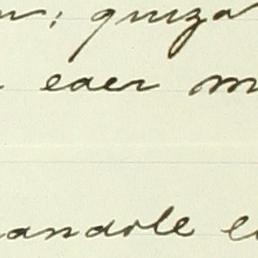 ; quiza
eaer m
andole e